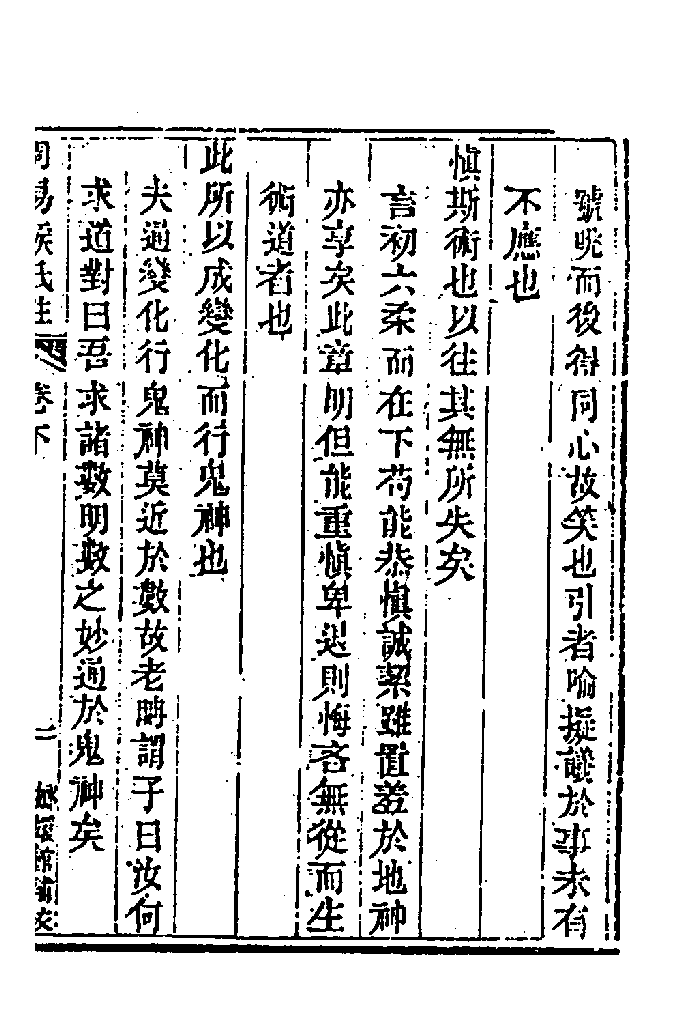 號咷而後得同心故笑也引者喻擬議於事未有
不應也
慎斯術也以往其無所失矣
言初六柔而在下苟能恭慎誠絜雖置羞於地神
亦享矣此章明但能重慎卑退則悔吝無從而生
術道者也
此所以成變化而行鬼神也
夫通變化行鬼神莫近於數故老聃謂子曰汝何
求道對曰吾求諸數明數之妙通於鬼神矣
周易侯氏註 卷下 二